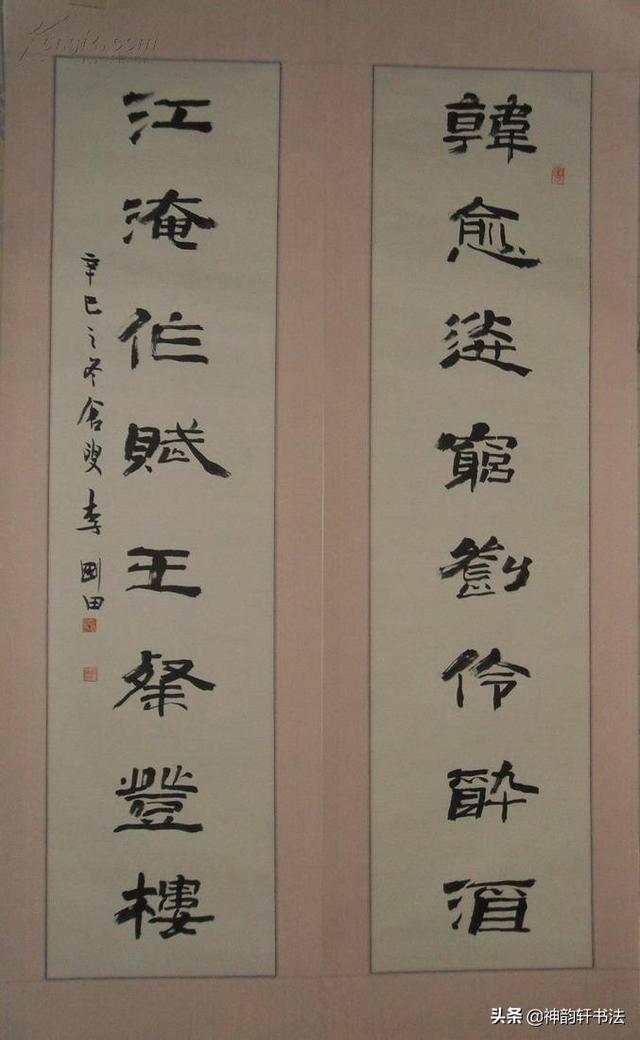 韓愈送窮劉伶醉酒
江淹作賦王粲登樓
辛巳之冬倉叟李剛田
头条 @神韵轩书法